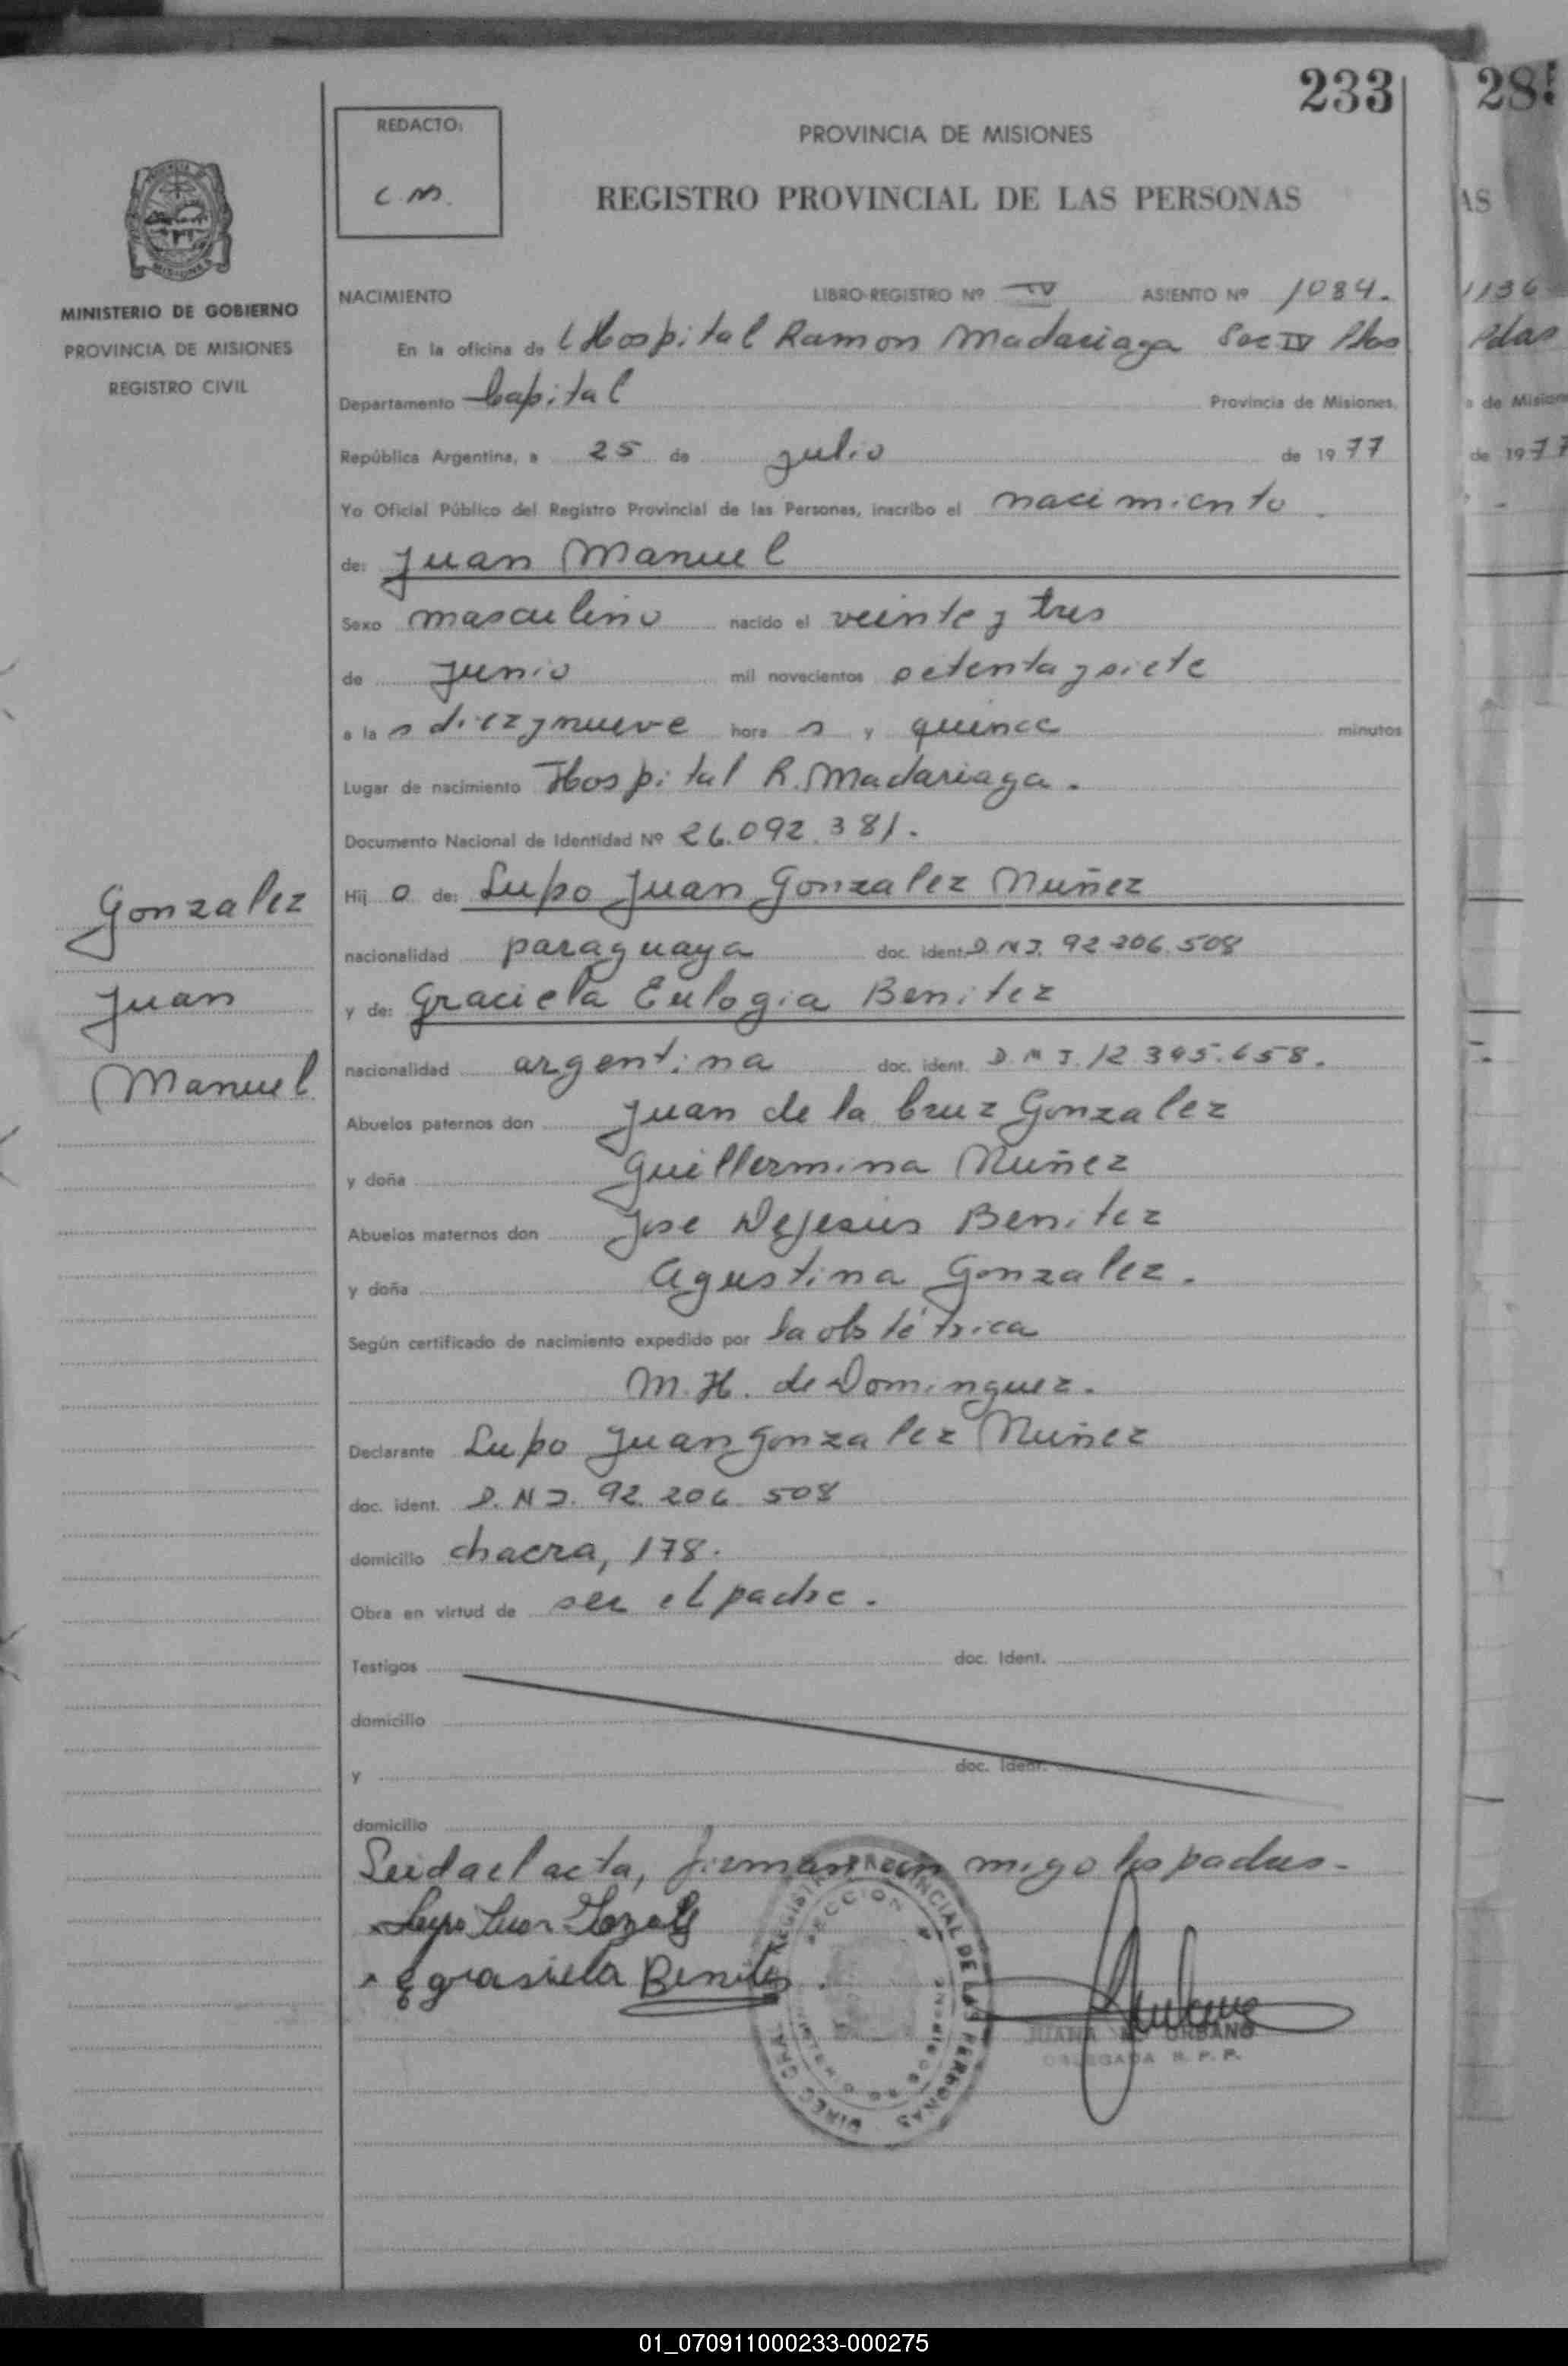 233
28
REDACTO:
C. M.
PROVINCIA DE MISIONES
REGISTRO PROVINCIAL DE LAS PERSONAS
AS
MINISTERIO DE GOBIERNO
PROVINCIA DE MISIONES
REGISTRO CIVIL
NACIMIENTO LIBRO-REGISTRO Nº IV ASIENTO Nº 1084.
1136
En la oficina de Hospital Ramon Madariaga Sec IV Pdas
Pdas
Departamento Capital Provincia de Misiones,
de Mision
República Argentina, a 25 de julio de 1977
de 1977
Yo Oficial Público del Registro Provincial de las Personas, inscribo el nacimiento.
de: Juan Manuel
Sexo masculino nacido el veinte y tres
de junio mil novecientos setenta y siete
a la s diez y nueve hora s y quince minutos
Lugar de nacimiento Hospital R. Madariaga.
Documento Nacional de Identidad Nº 26.092.381.
Hij o de: Lupo Juan Gonzalez Nuñez
nacionalidad paraguaya doc. ident. D.N.I. 92.206.508
y de: Graciela Eulogia Benitez
nacionalidad argentina doc. ident. D.N.I. 12.395.658.
Abuelos paternos don Juan de la Cruz Gonzalez
y doña Guillermina Nuñez
Abuelos maternos don Jose Dejesus Benitez
y doña Agustina Gonzalez.
Según certificado de nacimiento expedido por la obstétrica
M. H. de Dominguez.
Declarante Lupo Juan Gonzalez Nuñez
doc. ident. D.N.I. 92.206.508
domicilio chacra, 178.
Obra en virtud de ser el padre.
Testigos doc. Ident.
domicilio
y doc. Ident.
domicilio
Leida el acta, firman con migo los padres.
Gonzalez
Juan
Manuel
Lupo Juan Gonzalez
Egrasiela Benites
DIREC. GRAL. REGISTRO PROVINCIAL DE LAS PERSONAS
SECCION
JUANA URBANO
DELEGADA R. P. P.
01_070911000233-000275